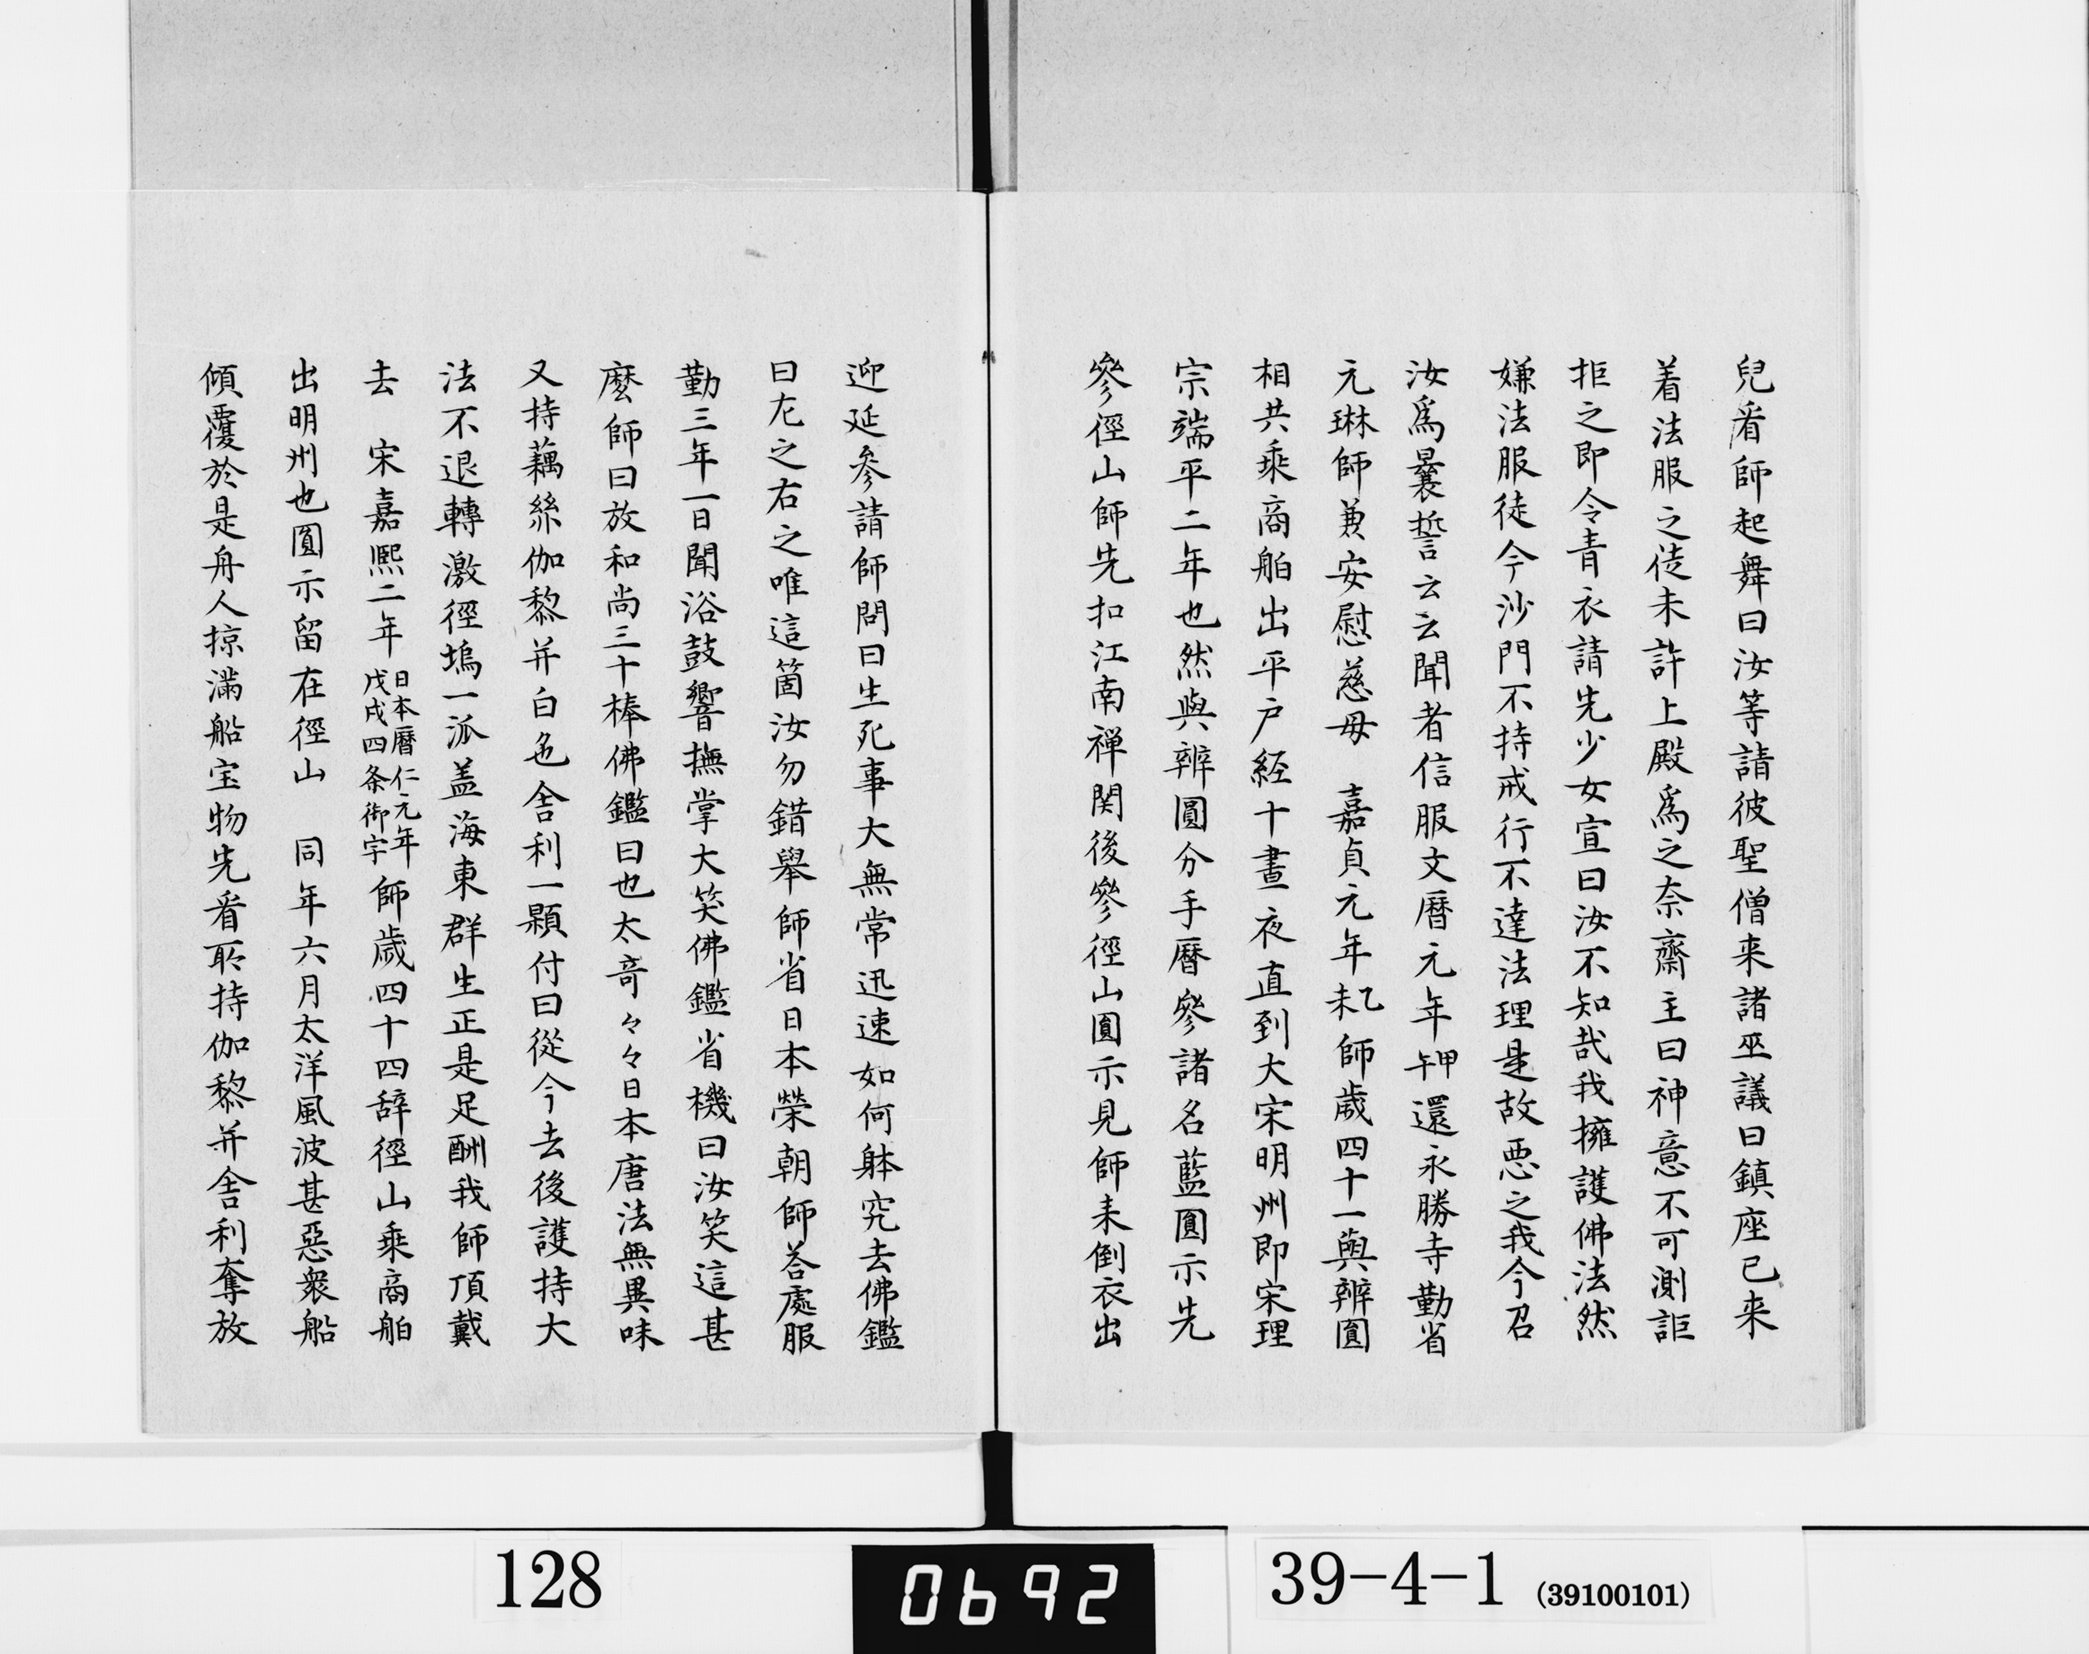 兒看師起舞曰汝等請彼聖僧来諸巫議曰鎮座已来
着法服之徒未許上殿爲之奈齋主曰神意不可測詎
拒之即令青衣請先少女宣曰汝不知哉我擁護佛法然
嫌法服徒今沙門不持戒行不達法理是故悪之我今召
汝爲曩誓云云聞者信服文暦元年甲午還永勝寺勤省
元琳師兼安慰慈母　嘉貞元年乙未師歳四十一與辨圓
相共乘商舶出平戸経十晝夜直到大宋明州即宋理
宗端平二年也然與辨圓分手曆參諸名藍圓示先
參徑山師先扣江南禅関後參徑山圓示見師来倒衣出
迎延参請師問曰生死事大無常迅速如何躰究去佛鑑
曰左之右之唯這箇汝勿錯舉師省日本榮朝師答處服
勤三年一日聞浴鼓響撫掌大笑佛鑑省機曰汝笑這甚
麼師曰放和尚三十棒佛鑑曰也太奇々々日本唐法無異味
又持藕絲伽黎并白色舎利一顆付曰從今去後護持大
法不退轉激徑塢一派盖海東群生正是足酬我師頂戴
去　宋嘉熙二年日本暦仁元年戊戌四条御宇師歳四十四辞徑山乘商舶
出明州也圓示留在徑山　同年六月太洋風波甚惡衆船
傾覆於是舟人掠滿船宝物先看所持伽黎并舎利奪放
128
0692
39-4-1 (39100101)